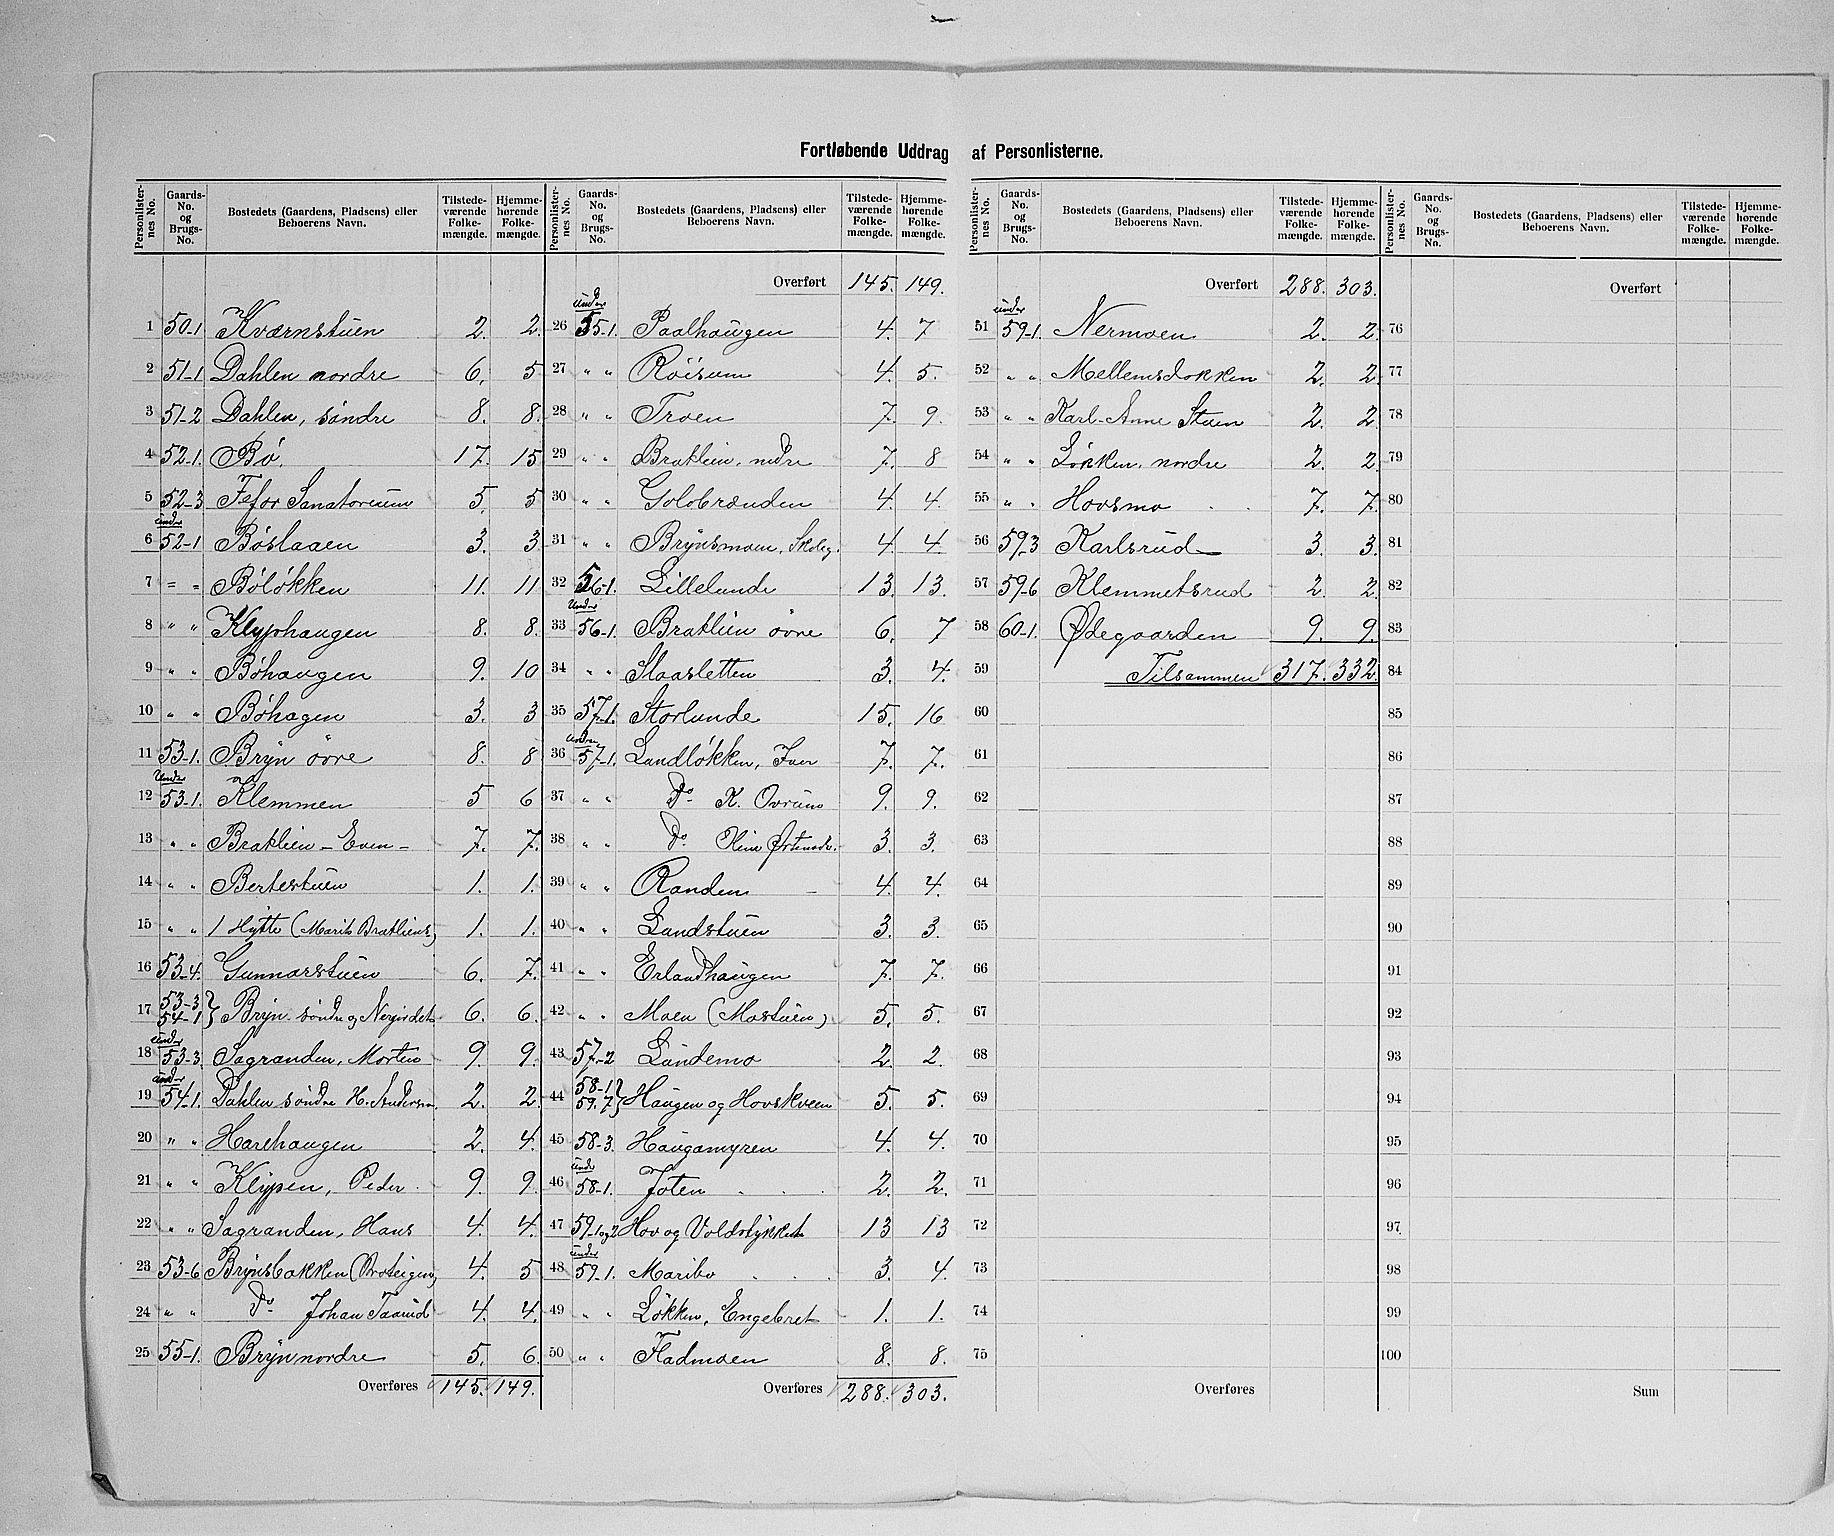 Fortløbende Uddrag af Personlisterne.
Personlisternes No. | Gaards-No. og Brugs-No. | Bostedets (Gaardens, Pladsens) eller Beboerens Navn. | Tilstedeværende Folkemængde. | Hjemmehørende Folkemængde.
1 50-1 Kværnstuen 2. 2.
2 51-1 Dahlen nordre 6. 5
3 51-2 Dahlen, søndre 8. 8.
4 52-1. Bø. 17. 15
5 52-3 Fefor Sanatorium 5. 5
6 under 52-1 Bøslaaen 3. 3
7 " " Bøløkken 11. 11
8 " " Klyphaugen 8. 8.
9 " " Bøhaugen 9. 10
10 " " Bøhagen 3. 3
11 53-1. Bryn øvre 8. 8
12 Under 53-1. Klemmen 5 6
13 " " Bratlien - Even - 7. 7.
14 " " Bertestuen 1. 1.
15 " " 1 Hytte (Marit Bratliens) 1. 1.
16 53-4. Gunnarstuen 6. 7.
17 53-3 54-1 } Bryn søndre og 6. 6.
18 under 53-3. Sagranden, Morten 9. 9.
19 under 54-1. Dahlen søndre H. Andersen. 2. 2.
20 " " Harehaugen 2. 4.
21 " " Klypen, Peder 9. 9.
22 " " Sagranden, Hans 4. 4.
23 53-6 Brynsbakken (Broteigen) 4. 5
24 " " Do Johan Taarud 4. 4.
25 55-1. Bryn nordre 5. 6.
Overføres 145. 149.
Overført 145. 149.
26 under 55-1. Paalhaugen 4. 7
27 " " Røisum 4. 5.
28 " " Troen 7. 9.
29 " " Bratlien, nedre 7. 8
30 " " Golobrænden 4. 4.
31 " " Brynsmoen, Skoleg. 4 4.
32 56-1. Lillelunde 13. 13.
33 Under 56-1. Bratlien øvre 6. 7
34 " " Slaasletten 3. 4.
35 57-1. Storlunde 15. 16
36 Under 57-1. Lundløkken, Iver 7. 7.
37 " " Do. K. Ovrum 9. 9.
38 " " Do. 3. 3.
39 " " Randen 4. 4.
40 " " Lundstuen 3. 3.
41 " " Erlandhaugen 7. 7.
42 " " Moen (Mostuen) 5. 5.
43 57-2 Lundemo 2. 2.
44 58-1 59.7 } Haugen og Hovskveen 5. 5.
45 58-3. Haugamyren 4. 4.
46 under 58-1. Joten 2. 2.
47 59-1og2 Hov og Voldstykket 13 13
48 under 59-1. Maribo 3. 4.
49 " " Løkken, Engebret 1. 1.
50 " " Fladmoen 8. 8.
Overføres 288. 303.
Overført 288. 303.
51 under 59-1. Nermoen 2. 2.
52 " " Mellemsløkken 2. 2
53 " " Karl-Anne Stuen 2. 2
54 " " Løkken, nordre 2. 2.
55 " " Hovsmo 7. 7.
56 59.3 Karlsrud 3. 3.
57 59-6 Klemmetsrud 2. 2.
58 60-1. Ødegaarden 9. 9.
59 Tilsammen 317. 332.
60
61
62
63
64
65
66
67
68
69
70
71
72
73
74
75
Overføres
Overført
76
77
78
79
80
81
82
83
84
85
86
87
88
89
90
91
92
93
94
95
96
97
98
99
100
Sum